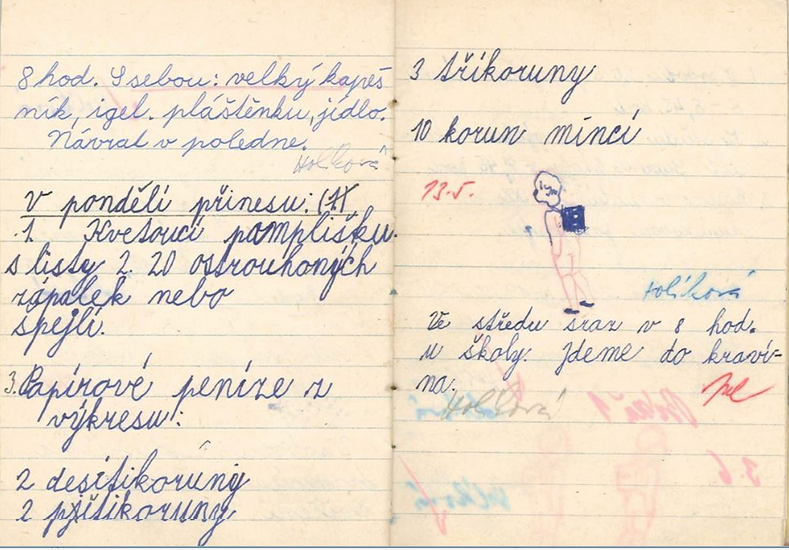 8 hod. S sebou: velký kapes
ník, igel. pláštěnku, jídlo.
Návrat v poledne.
Holíková
V pondělí přinesu:
1 Kvetoucí pamplišku
s listy 2. 20 ostrouhaných
zápalek nebo
špejlí.
3. Papírové peníze z
výkresu:
2 desítikoruny
2 pětikoruny
3 tříkoruny
10 korun mincí
13.5.
Holíková
Ve středu sraz v 8 hod.
u školy. Jdeme do kraví-
na.
Holíková
3.6.